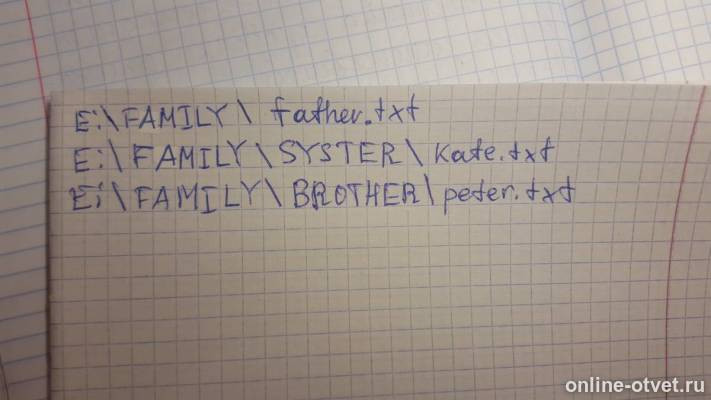 E:\FAMILY\ father.txt
E:\FAMILY\SYSTER\kate.txt
E:\FAMILY\BROTHER\peter.txt
online-otvet.ru